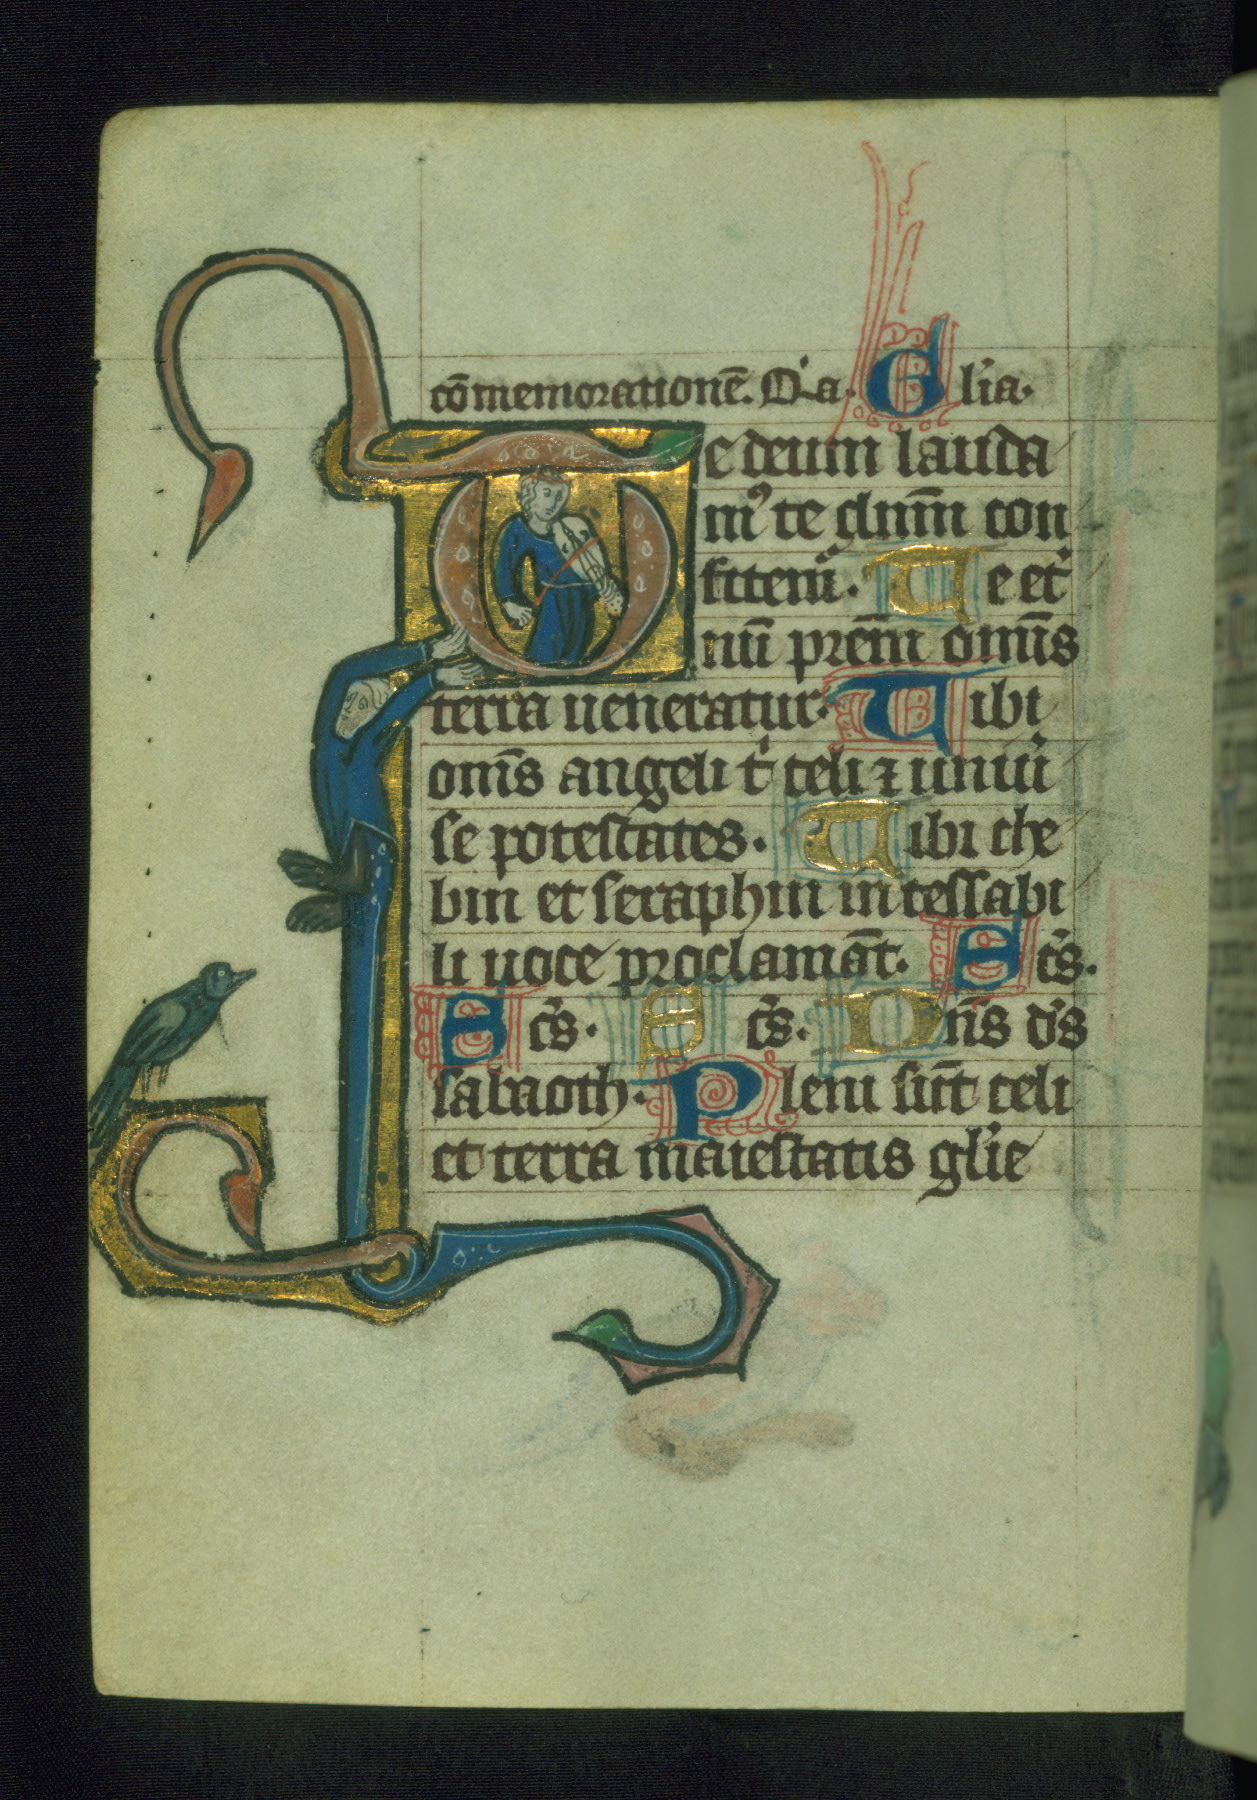 cōmemorationē. Q'a. Gl'ia.
Te deum lauda
m9 te dn̄m con
fitem̄. Te et'
nū pr̄em om̄is
terra ueneratur. Tibi
om̄s angeli t' celi ⁊ uniu'
se potestates. Tibi che
bin et seraphin incessabi
li uoce proclamāt. Sc̄s.
Sc̄s. Sc̄s. Dn̄s d's
sabaoth. Pleni sūt celi
et terra maiestatis gl'ie